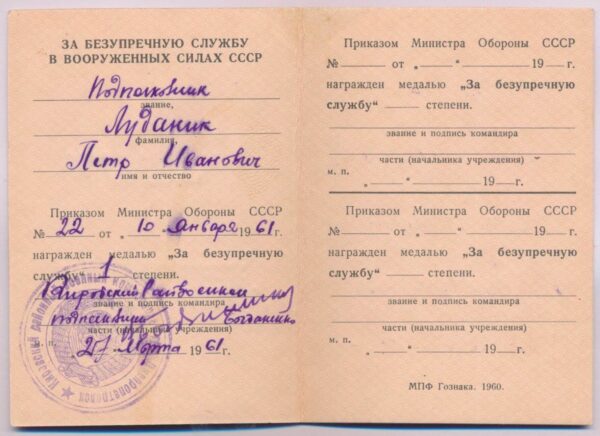 ЗА БЕЗУПРЕЧНУЮ СЛУЖБУ
В ВООРУЖЕННЫХ СИЛАХ СССР
Подполковник
звание,
Луданик
фамилия,
Петр Иванович
имя и отчество
Приказом Министра Обороны СССР
№ 22 от „10 января 1961 г.
награжден медалью „За безупречную
службу" 1 степени.
Кировский Райвоенком
звание и подпись командира
подполковник Богданенко
части (начальника учреждения)
м. п. „27 Марта 1961 г.
Приказом Министра Обороны СССР
№ от „ " 19 г.
награжден медалью „За безупречную
службу" степени.
звание и подпись командира
части (начальника учреждения)
м. п. „ " 19 г.
Приказом Министра Обороны СССР
№ от „ " 19 г.
награжден медалью „За безупречную
службу" степени.
звание и подпись командира
части (начальника учреждения)
м. п. „ " 19 г.
МПФ Гознака. 1960.